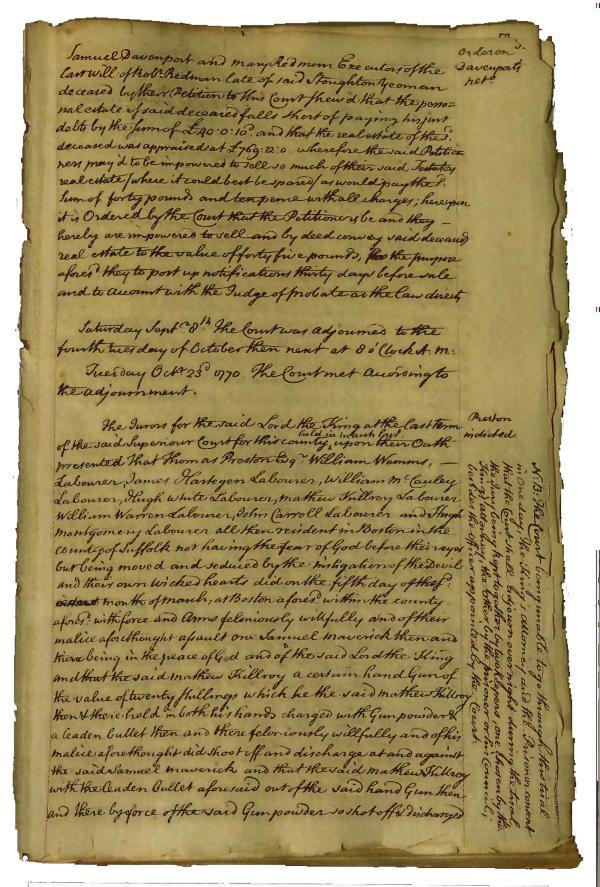 Samuel Davenport and mary Redman Executors of the
Last will of Robt. Redman late of said Stoughton Yeoman
deceased by their Petition to this Court shew'd that the perso=
nal estate of said deceased falls short of paying his just
debts by the Sum of £40:0:10d. and that the real estate of the sd.
deceased was appraised at £769:12:0. wherefore the said Petitio
ners pray'd to be impowered to sell so much of their said Testators
real estate (where it could best be spared) as would pay the sd.
Sum of forty pounds and ten pence with all charges; hereupon
it is Ordered by the Court that the Petitioners be and they
hereby are impowered to sell and by deed convey said deceased
real estate to the value of forty five pounds, the purpose
afores.d they to post up notifications thirty days before sale
and to Account with the Judge of probate as the law directs
Order on
Davenports
petn.
Saturday Septr. 8th. The Court was adjourned to the
fourth tuesday of October then next at 8 o'Clock A. M:
Tuesday Octr. 23d. 1770 The Court met According to
the adjournment.
The Jurors for the said Lord the King at the last term
of the said Superiour Court for this county, upon their Oath
held in March last
presented That Thomas Preston Esqr. William Wemms,
Labourer, James Hartegen Labourer, William Mc.Cauley
Labourer, Hugh White Labourer, mathew Killroy Labourer
William Warren Labourer, John Carroll Labourer and Hugh
montgomery Labourer all then resident in Boston in the
county of Suffolk not having the fear of God before their eyes
but being moved and seduced by the instigation of the Devil
and their own wicked hearts did on the fifth day of the sd.
month of march, at Boston afores.d within the county
afores.d with force and Arms feloniously willfully and of their
malice aforethought assault one Samuel maverick then and
there being in the peace of God and of the said Lord the King
and that the said mathew Killroy a certain hand Gun of
the value of twenty shillings which he the said mathew Killroy
then & there held in both his hands charged with Gunpowder &
a leaden bullet then and there feloniously willfully and of his
malice aforethought did shoot off and discharge at and against
the said Samuel maverick and that the said mathew Killroy
with the leaden bullet aforesaid out of the said hand Gun then
and there by force of the said Gunpowder so shot off & discharged
Preston
indicted
N:B: The Court being unable to go through this trial
in one day, The King's attorney and the Prisoner consent
that the Court shall adjourn over night during the trial,
the Jury being kept together by two Keepers, one chosen by the
King's attorney, the other by the prisoner or his Council;
besides the Officer appointed by the Court.